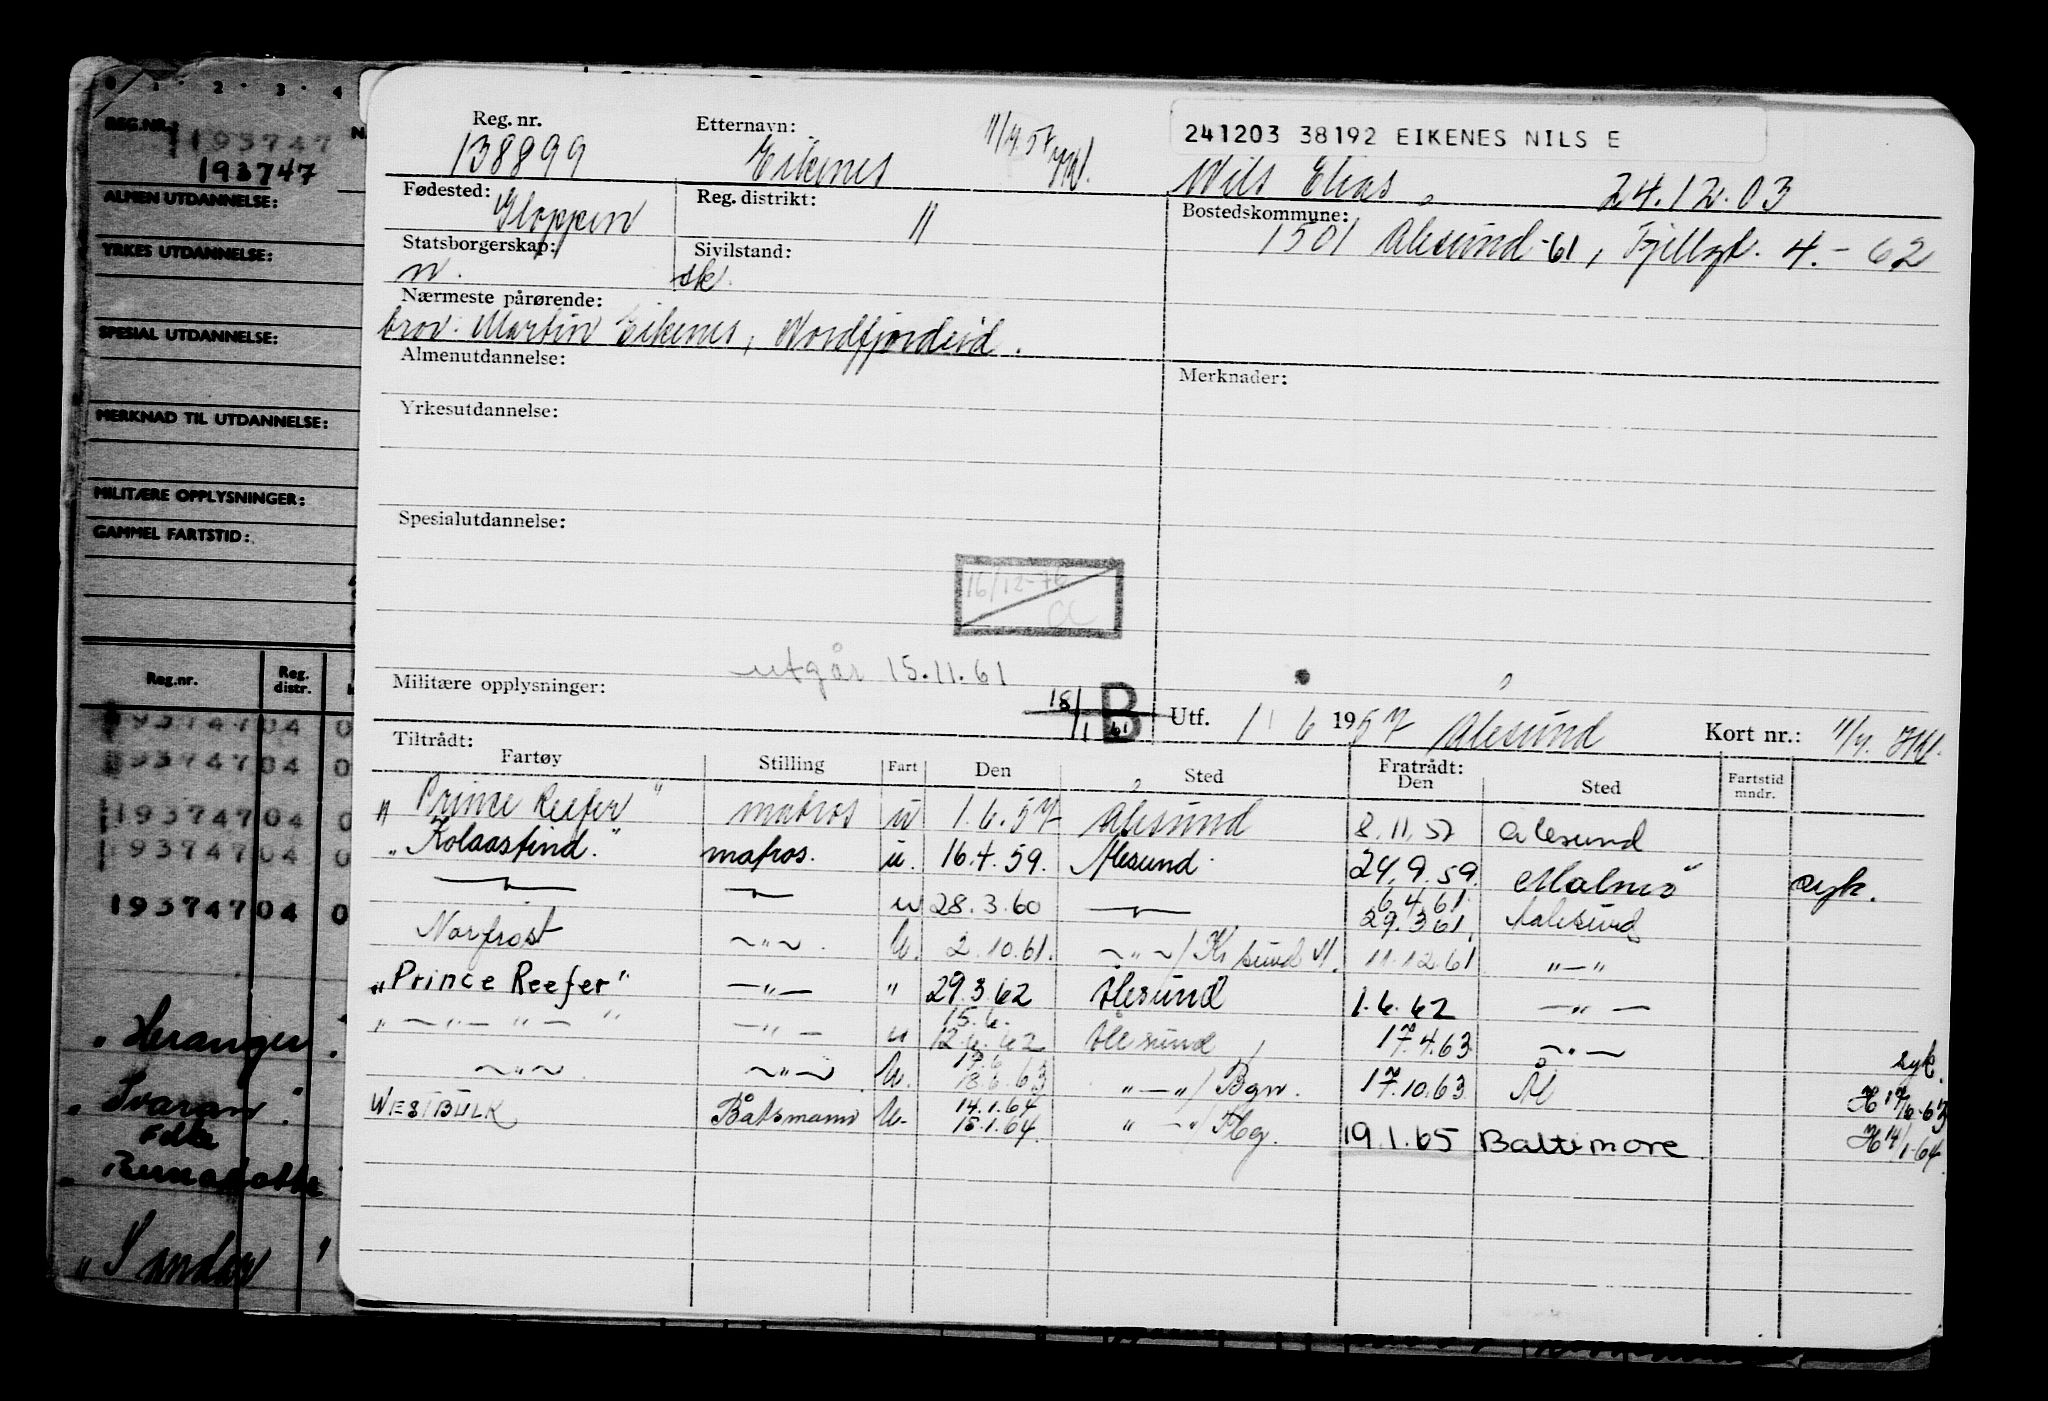 Reg. nr. Etternavn: 11/7.57
138899 Eikenes 241203 38192 EIKENES NILS E
Nils Elias, 24.12.03
Fødested: Gloppen Reg. distrikt: 11 Bostedskommune: 1501 Ålesund-61, Fjellgt. 4.-62
Statsborgerskap: n. Sivilstand: sk.
Nærmeste pårørende:
bror: Martin Eikenes, Nordfjordeid.
Almenutdannelse: Merknader:
Yrkesutdannelse:
Spesialutdannelse:
16/12-76
utgår 15.11.61
Militære opplysninger: 18/1 61 B B Utf. 1 6 1957 Ålesund Kort nr.: 11/7.
Tiltrådt: Fratrådt:
Fartøy Stilling Fart Den Sted Den Sted Fartstid mndr.
"Prince Reefer" matros u 1.6.57 Ålesund 8.11.57 Ålesund
"Kolaastind." matros. u. 16.4.59. Ålesund. 24.9.59. Malmø syk.
— " — — " — u 28.3.60 — " — 6.4.61. 29.3.61. Aalesund
Norfrost — " — . U. 2.10.61. — " — / Kr sund N. 11.12.61 " — "
"Prince Reefer" — " — " 29.3.62 Ålesund 1.6.62 — " —
" — " — " — " — " — u 15.6. 12.6.62 Ålesund 17.4.63 — " — syk.
— " — — " — U. 17.6 18.6 63 " — " / Bgn. 17.10.63 Ål H 17/6-63
WESTBULK Båtsmann U. 14.1.64 15.1.64. " — " / Hbg. 19.1.65 Baltimore H 14/1-64.
0 1 2 3 4
REG.NR.: 193747
193747
ALMEN UTDANNELSE:
YRKES UTDANNELSE:
SPESIAL UTDANNELSE:
MERKNAD TIL UTDANNELSE:
MILITÆRE OPPLYSNINGER:
GAMMEL FARTSTID:
Reg.nr. Reg. distr.
193747 04 0
193747 04 0
193747 04 0
193747 04 0
193747 04 0
"Heranger
"Svaran"
Folke
"Bernadotte
"Sandar"